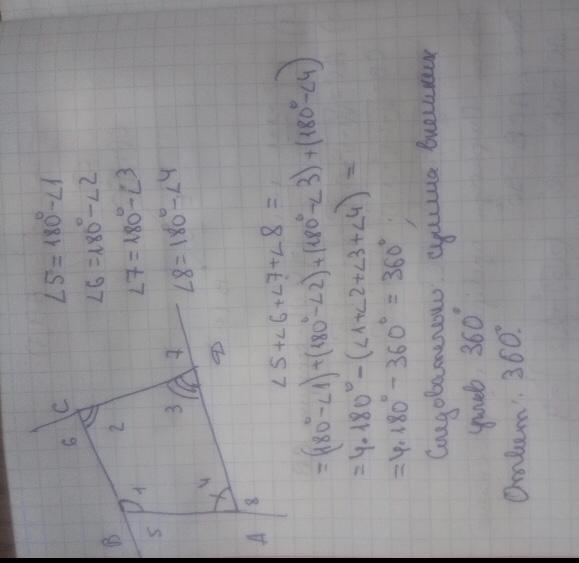 ∠5=180°-∠1
∠6=180°-∠2
∠7=180°-∠3
∠8=180°-∠4
B
C
D
A
1
2
3
4
5
6
7
8
∠5+∠6+∠7+∠8 =
=(180°-∠1)+(180°-∠2)+(180°-∠3)+(180°-∠4)
=4·180°-(∠1+∠2+∠3+∠4) =
=4·180°-360°=360°
Следовательно: сумма внешних
углов 360°
Ответ: 360°.